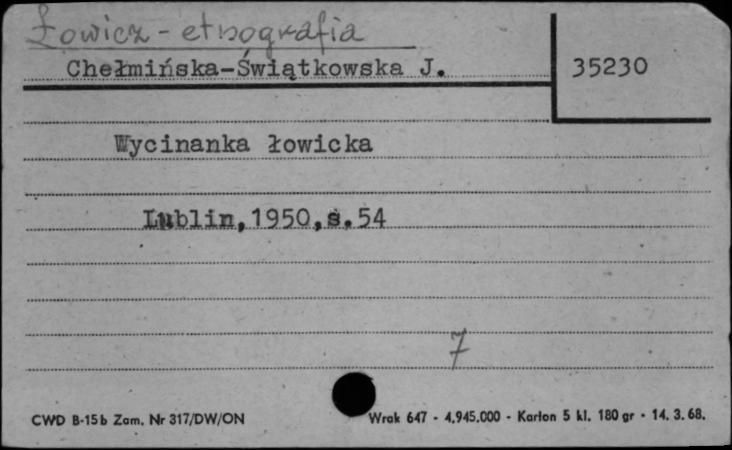 Łowicz - etnografia
Chełmińska-Świątkowska J.
35230
Wycinanka łowicka
Lublin, 1950, s. 54
7
CWD B-15b Zam. Nr 317/DW/ON
Wrak 647 - 4.945.000 - Karton 5 kl. 180 gr - 14. 3. 68.